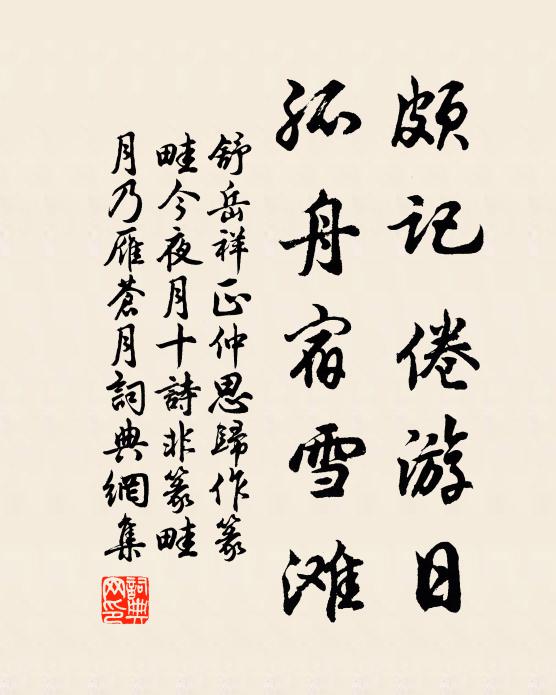 颇记倦游日
孤舟宿雪滩
舒岳祥正仲思歸作篆
畦今夜月十詩非篆畦
月乃雁蒼月詞典網集
詞典
网印